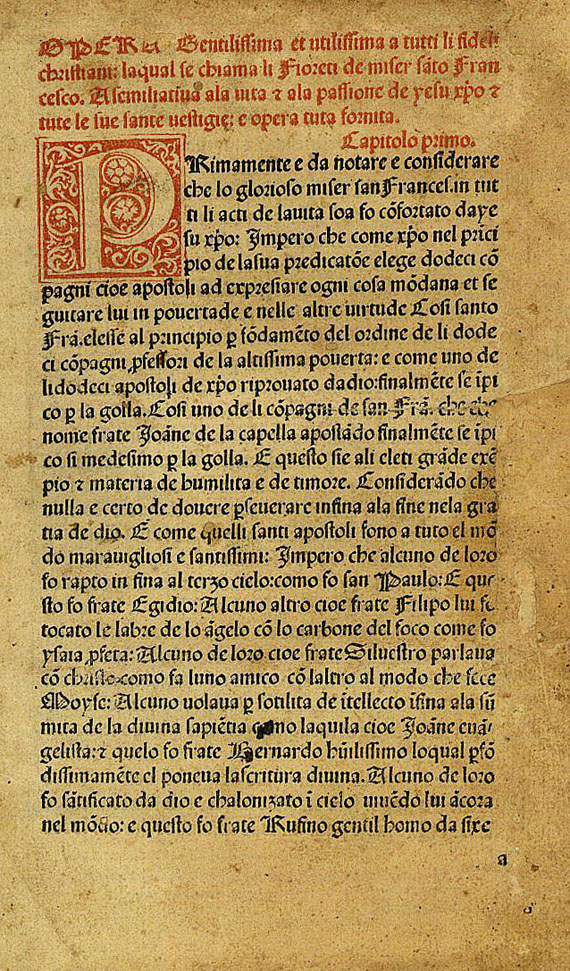 OPERA Gentilissima et utilissima a tutti li fideli
christiani: laqual se chiama li Fioreti de miser sãto Fran
cesco. Asemiliativa ala vita ⁊ ala passione de yesu xp̃o ⁊
tute le sue sante vestigie: e opera tuta fornita.
Capitolo primo.
PRimamente e da notare e considerare
che lo glorioso miser san Frances.in tut
ti li acti de lavita soa fo cõfortato da ye
su xp̃o: Impero che come xp̃o nel prĩci
pio de lasua predicatõe elege dodeci cõ
pagni cioe apostoli ad expresiare ogni cosa mõdana et se
guitare lui in povertade e nelle altre virtude Cosi santo
Frã.elesse al principio ꝑ fõdamẽto del ordine de li dode
ci cõpagni ꝓfessori de la altissima poverta: e come uno de
li dodeci apostoli de xp̃o riprovato da dio:finalmẽte se ĩpi
co ꝑ la golla. Cosi uno de li cõpagni de san Frã. che
nome frate Joãne de la capella apostãdo finalmẽte se ĩpi
co si medesimo ꝑ la golla. E questo sie ali eleti grãde exẽ
pio ⁊ materia de humilita e de timore. Considerãdo che
nulla e certo de dovere ꝑseverare infina ala fine nela gra
tia de dio. E come quelli santi apostoli fono a tuto el mõ
do maravigliosi e santissimi: Impero che alcuno de loro
fo rapto in fina al terzo cielo:como fo san Paulo: E que
sto fo frate Egidio: Alcuno altro cioe frate Filipo lui fo
tocato le labre de lo ãgelo cõ lo carbone del foco come fo
ysaia ꝓfeta: Alcuno de loro cioe frate Silvestro parlava
cõ christo como fa luno amico cõ laltro al modo che fece
Moyse: Alcuno volava ꝑ sotilita de ĩtellecto ĩfina ala sũ
mita de la divina sapiẽtia como laquila cioe Joãne evã-
gelista: ⁊ quelo fo frate Bernardo hũilissimo loqual ꝓfõ
dissimamẽte el poneva lascritura divina. Alcuno de loro
fo sãtificato da dio e chalonizato ĩ cielo vivẽdo lui ãcora
nel mõdo: e questo fo frate Rufino gentil homo da sixe
a